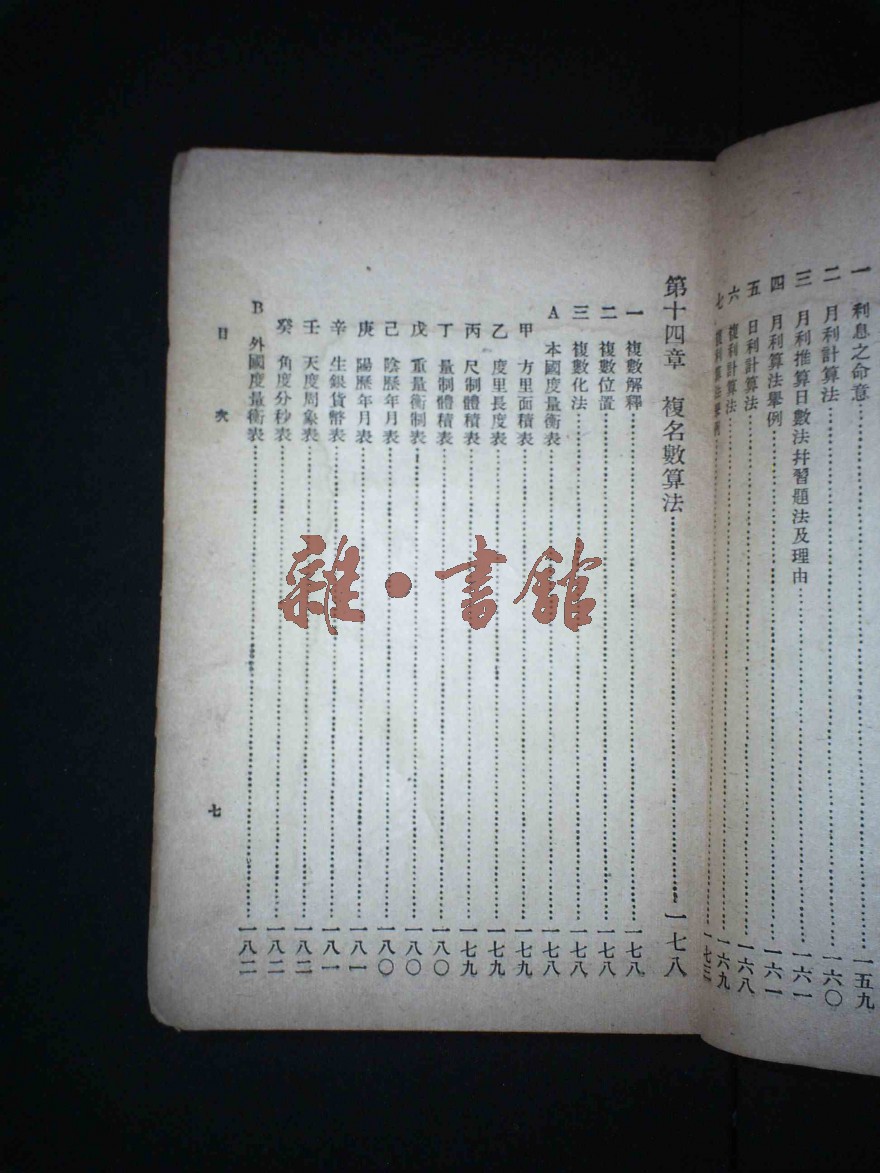 一　利息之命意……一五九
二　月利計算法……一六〇
三　月利推算日數法幷習題法及理由……一六一
四　月利算法舉例……一六一
五　日利計算法……一六八
六　複利計算法……一六九
七　複利算法舉例……一七三
第十四章　複名數算法……一七八
一　複數解釋……一七八
二　複數位置……一七八
三　複數化法……一七八
A　本國度量衡表……一七八
甲　方里面積表……一七九
乙　度里長度表……一七九
丙　尺制體積表……一七九
丁　量制體積表……一八〇
戊　重量衡制表……一八〇
己　陰歷年月表……一八〇
庚　陽歷年月表……一八一
辛　生銀貨幣表……一八一
壬　天度周象表……一八二
癸　角度分秒表……一八二
B　外國度量衡表……一八二
目次
七
雜·書館